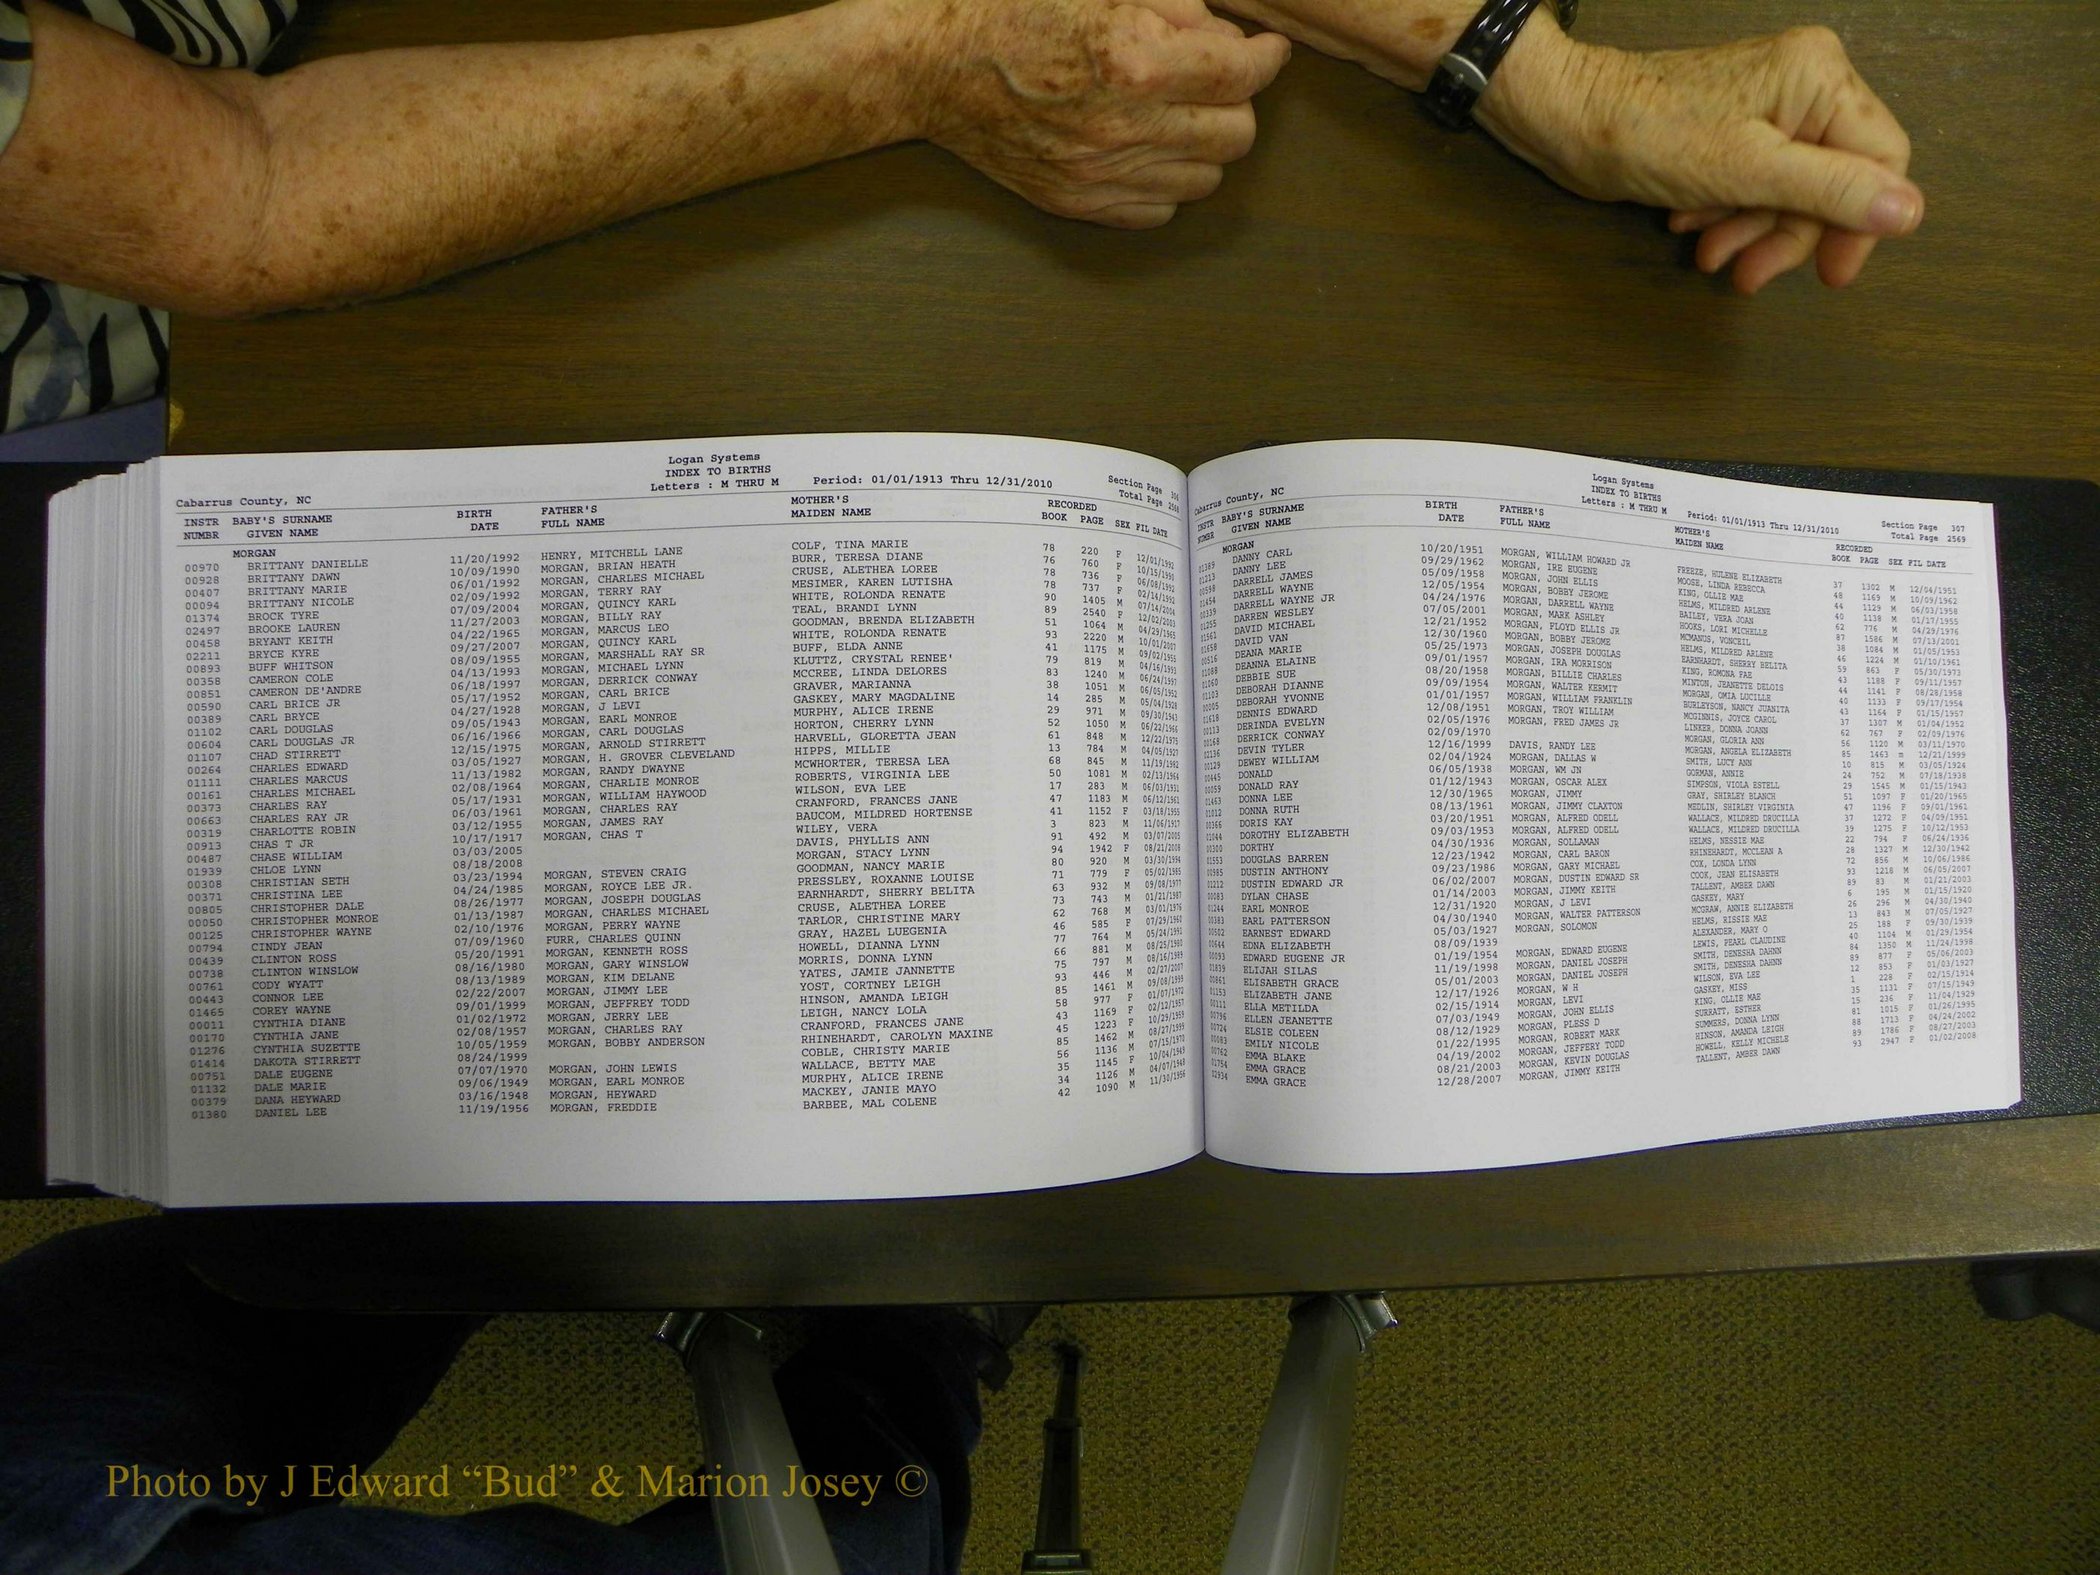 Logan Systems
INDEX TO BIRTHS
Letters : M THRU M Period: 01/01/1913 Thru 12/31/2010 Section Page 306
Cabarrus County, NC Total Page 2568
INSTR BABY'S SURNAME BIRTH FATHER'S MOTHER'S RECORDED
NUMBR GIVEN NAME DATE FULL NAME MAIDEN NAME BOOK PAGE SEX FIL DATE
MORGAN
00970 BRITTANY DANIELLE 11/20/1992 HENRY, MITCHELL LANE COLF, TINA MARIE 78 220 F 12/01/1992
00928 BRITTANY DAWN 10/09/1990 MORGAN, BRIAN HEATH BURR, TERESA DIANE 76 760 F 10/15/1990
00407 BRITTANY MARIE 06/01/1992 MORGAN, CHARLES MICHAEL CRUSE, ALETHEA LOREE 78 736 F 06/08/1992
00094 BRITTANY NICOLE 02/09/1992 MORGAN, TERRY RAY MESIMER, KAREN LUTISHA 78 737 F 02/14/1992
01374 BROCK TYRE 07/09/2004 MORGAN, QUINCY KARL WHITE, ROLONDA RENATE 90 1405 M 07/14/2004
02497 BROOKE LAUREN 11/27/2003 MORGAN, BILLY RAY TEAL, BRANDI LYNN 89 2540 F 12/02/2003
00458 BRYANT KEITH 04/22/1965 MORGAN, MARCUS LEO GOODMAN, BRENDA ELIZABETH 51 1064 M 04/29/1965
02211 BRYCE KYRE 09/27/2007 MORGAN, QUINCY KARL WHITE, ROLONDA RENATE 93 2220 M 10/01/2007
00893 BUFF WHITSON 08/09/1955 MORGAN, MARSHALL RAY SR BUFF, ELDA ANNE 41 1175 M 09/02/1955
00358 CAMERON COLE 04/13/1993 MORGAN, MICHAEL LYNN KLUTTZ, CRYSTAL RENEE' 79 819 M 04/16/1993
00851 CAMERON DE'ANDRE 06/18/1997 MORGAN, DERRICK CONWAY MCCREE, LINDA DELORES 83 1240 M 06/24/1997
00590 CARL BRICE JR 05/17/1952 MORGAN, CARL BRICE GRAVER, MARIANNA 38 1051 M 06/05/1952
00389 CARL BRYCE 04/27/1928 MORGAN, J LEVI GASKEY, MARY MAGDALINE 14 285 M 05/04/1928
01102 CARL DOUGLAS 09/05/1943 MORGAN, EARL MONROE MURPHY, ALICE IRENE 29 971 M 09/30/1943
00604 CARL DOUGLAS JR 06/16/1966 MORGAN, CARL DOUGLAS HORTON, CHERRY LYNN 52 1050 M 06/22/1966
01107 CHAD STIRRETT 12/15/1975 MORGAN, ARNOLD STIRRETT HARVELL, GLORETTA JEAN 61 848 M 12/22/1975
00264 CHARLES EDWARD 03/05/1927 MORGAN, H. GROVER CLEVELAND HIPPS, MILLIE 13 784 M 04/05/1927
01111 CHARLES MARCUS 11/13/1982 MORGAN, RANDY DWAYNE MCWHORTER, TERESA LEA 68 845 M 11/19/1982
00161 CHARLES MICHAEL 02/08/1964 MORGAN, CHARLIE MONROE ROBERTS, VIRGINIA LEE 50 1081 M 02/13/1964
00373 CHARLES RAY 05/17/1931 MORGAN, WILLIAM HAYWOOD WILSON, EVA LEE 17 283 M 06/03/1931
00663 CHARLES RAY JR 06/03/1961 MORGAN, CHARLES RAY CRANFORD, FRANCES JANE 47 1183 M 06/12/1961
00319 CHARLOTTE ROBIN 03/12/1955 MORGAN, JAMES RAY BAUCOM, MILDRED HORTENSE 41 1152 F 03/18/1955
00913 CHAS T JR 10/17/1917 MORGAN, CHAS T WILEY, VERA 3 823 M 11/06/1917
00487 CHASE WILLIAM 03/03/2005 DAVIS, PHYLLIS ANN 91 492 M 03/07/2005
01939 CHLOE LYNN 08/18/2008 MORGAN, STACY LYNN 94 1942 F 08/21/2008
00308 CHRISTIAN SETH 03/23/1994 MORGAN, STEVEN CRAIG GOODMAN, NANCY MARIE 80 920 M 03/30/1994
00371 CHRISTINA LEE 04/24/1985 MORGAN, ROYCE LEE JR. PRESSLEY, ROXANNE LOUISE 71 779 F 05/02/1985
00805 CHRISTOPHER DALE 08/26/1977 MORGAN, JOSEPH DOUGLAS EARNHARDT, SHERRY BELITA 63 932 M 09/08/1977
00050 CHRISTOPHER MONROE 01/13/1987 MORGAN, CHARLES MICHAEL CRUSE, ALETHEA LOREE 73 743 M 01/21/1987
00125 CHRISTOPHER WAYNE 02/10/1976 MORGAN, PERRY WAYNE TARLOR, CHRISTINE MARY 62 768 M 03/01/1976
00794 CINDY JEAN 07/09/1960 FURR, CHARLES QUINN GRAY, HAZEL LUEGENIA 46 585 F 07/29/1960
00439 CLINTON ROSS 05/20/1991 MORGAN, KENNETH ROSS HOWELL, DIANNA LYNN 77 764 M 05/24/1991
00738 CLINTON WINSLOW 08/16/1980 MORGAN, GARY WINSLOW MORRIS, DONNA LYNN 66 881 M 08/25/1980
00761 CODY WYATT 08/13/1989 MORGAN, KIM DELANE YATES, JAMIE JANNETTE 75 797 M 08/16/1989
00443 CONNOR LEE 02/22/2007 MORGAN, JIMMY LEE YOST, CORTNEY LEIGH 93 446 M 02/27/2007
01465 COREY WAYNE 09/01/1999 MORGAN, JEFFREY TODD HINSON, AMANDA LEIGH 85 1461 M 09/08/1999
00011 CYNTHIA DIANE 01/02/1972 MORGAN, JERRY LEE LEIGH, NANCY LOLA 58 977 F 01/07/1972
00170 CYNTHIA JANE 02/08/1957 MORGAN, CHARLES RAY CRANFORD, FRANCES JANE 43 1169 F 02/12/1957
01276 CYNTHIA SUZETTE 10/05/1959 MORGAN, BOBBY ANDERSON RHINEHARDT, CAROLYN MAXINE 45 1223 F 10/29/1959
01414 DAKOTA STIRRETT 08/24/1999 COBLE, CHRISTY MARIE 85 1462 M 08/27/1999
00751 DALE EUGENE 07/07/1970 MORGAN, JOHN LEWIS WALLACE, BETTY MAE 56 1136 M 07/15/1970
01132 DALE MARIE 09/06/1949 MORGAN, EARL MONROE MURPHY, ALICE IRENE 35 1145 F 10/04/1949
00379 DANA HEYWARD 03/16/1948 MORGAN, HEYWARD MACKEY, JANIE MAYO 34 1126 M 04/07/1948
01380 DANIEL LEE 11/19/1956 MORGAN, FREDDIE BARBEE, MAL COLENE 42 1090 M 11/30/1956
Logan Systems
INDEX TO BIRTHS
Letters : M THRU M Period: 01/01/1913 Thru 12/31/2010 Section Page 307
Cabarrus County, NC Total Page 2569
INSTR BABY'S SURNAME BIRTH FATHER'S MOTHER'S RECORDED
NUMBR GIVEN NAME DATE FULL NAME MAIDEN NAME BOOK PAGE SEX FIL DATE
MORGAN
01389 DANNY CARL 10/20/1951 MORGAN, WILLIAM HOWARD JR FREEZE, HULENE ELIZABETH 37 1302 M 12/04/1951
01213 DANNY LEE 09/29/1962 MORGAN, IRE EUGENE MOOSE, LINDA REBECCA 48 1169 M 10/09/1962
00598 DARRELL JAMES 05/09/1958 MORGAN, JOHN ELLIS KING, OLLIE MAE 44 1129 M 06/03/1958
01454 DARRELL WAYNE 12/05/1954 MORGAN, BOBBY JEROME HELMS, MILDRED ARLENE 40 1138 M 01/17/1955
00339 DARRELL WAYNE JR 04/24/1976 MORGAN, DARRELL WAYNE BAILEY, VERA JOAN 62 776 M 04/29/1976
01255 DARREN WESLEY 07/05/2001 MORGAN, MARK ASHLEY HOOKS, LORI MICHELLE 87 1586 M 07/13/2001
01561 DAVID MICHAEL 12/21/1952 MORGAN, FLOYD ELLIS JR MCMANUS, VONCEIL 38 1084 M 01/05/1953
01658 DAVID VAN 12/30/1960 MORGAN, BOBBY JEROME HELMS, MILDRED ARLENE 46 1224 M 01/10/1961
00516 DEANA MARIE 05/25/1973 MORGAN, JOSEPH DOUGLAS EARNHARDT, SHERRY BELITA 59 863 F 05/30/1973
01088 DEANNA ELAINE 09/01/1957 MORGAN, IRA MORRISON KING, ROMONA FAE 43 1188 F 09/11/1957
01060 DEBBIE SUE 08/20/1958 MORGAN, BILLIE CHARLES MINTON, JEANETTE DELOIS 44 1141 F 08/28/1958
01103 DEBORAH DIANNE 09/09/1954 MORGAN, WALTER KERMIT MORGAN, OMIA LUCILLE 40 1133 F 09/17/1954
00005 DEBORAH YVONNE 01/01/1957 MORGAN, WILLIAM FRANKLIN BURLEYSON, NANCY JUANITA 43 1164 F 01/15/1957
01618 DENNIS EDWARD 12/08/1951 MORGAN, TROY WILLIAM MCGINNIS, JOYCE CAROL 37 1307 M 01/04/1952
00113 DERINDA EVELYN 02/05/1976 MORGAN, FRED JAMES JR LINKER, DONNA JOANN 62 767 F 02/09/1976
00168 DERRICK CONWAY 02/09/1970 MORGAN, GLORIA ANN 56 1120 M 03/11/1970
02136 DEVIN TYLER 12/16/1999 DAVIS, RANDY LEE MORGAN, ANGELA ELIZABETH 85 1463 m 12/21/1999
00129 DEWEY WILLIAM 02/04/1924 MORGAN, DALLAS W SMITH, LUCY ANN 10 815 M 03/05/1924
00445 DONALD 06/05/1938 MORGAN, WM JN GORMAN, ANNIE 24 752 M 07/18/1938
00059 DONALD RAY 01/12/1943 MORGAN, OSCAR ALEX SIMPSON, VIOLA ESTELL 29 1545 M 01/15/1943
01463 DONNA LEE 12/30/1965 MORGAN, JIMMY GRAY, SHIRLEY BLANCH 51 1097 F 01/20/1965
01012 DONNA RUTH 08/13/1961 MORGAN, JIMMY CLAXTON MEDLIN, SHIRLEY VIRGINIA 47 1196 F 09/01/1961
00366 DORIS KAY 03/20/1951 MORGAN, ALFRED ODELL WALLACE, MILDRED DRUCILLA 37 1272 F 04/09/1951
01044 DOROTHY ELIZABETH 09/03/1953 MORGAN, ALFRED ODELL WALLACE, MILDRED DRUCILLA 39 1275 F 10/12/1953
00300 DORTHY 04/30/1936 MORGAN, SOLLAMAN HELMS, NESSIE MAE 22 794 F 06/24/1936
01553 DOUGLAS BARREN 12/23/1942 MORGAN, CARL BARON RHINEHARDT, MCCLEAN A 28 1327 M 12/30/1942
00985 DUSTIN ANTHONY 09/23/1986 MORGAN, GARY MICHAEL COX, LONDA LYNN 72 856 M 10/06/1986
01212 DUSTIN EDWARD JR 06/02/2007 MORGAN, DUSTIN EDWARD SR COOK, JEAN ELISABETH 93 1218 M 06/05/2007
00083 DYLAN CHASE 01/14/2003 MORGAN, JIMMY KEITH TALLENT, AMBER DAWN 89 83 M 01/21/2003
01244 EARL MONROE 12/31/1920 MORGAN, J LEVI GASKEY, MARY 6 195 M 01/15/1920
00383 EARL PATTERSON 04/30/1940 MORGAN, WALTER PATTERSON MCGRAW, ANNIE ELIZABETH 26 296 M 04/30/1940
00502 EARNEST EDWARD 05/03/1927 MORGAN, SOLOMON HELMS, RISSIE MAE 13 843 M 07/05/1927
00644 EDNA ELIZABETH 08/09/1939 ALEXANDER, MARY O 25 188 F 09/30/1939
00093 EDWARD EUGENE JR 01/19/1954 MORGAN, EDWARD EUGENE LEWIS, PEARL CLAUDINE 40 1104 M 01/29/1954
01839 ELIJAH SILAS 11/19/1998 MORGAN, DANIEL JOSEPH SMITH, DENESHA DAHNN 84 1350 M 11/24/1998
00861 ELISABETH GRACE 05/01/2003 MORGAN, DANIEL JOSEPH SMITH, DENESHA DAHNN 89 877 F 05/06/2003
01153 ELIZABETH JANE 12/17/1926 MORGAN, W H WILSON, EVA LEE 12 853 F 01/03/1927
00111 ELLA METILDA 02/15/1914 MORGAN, LEVI GASKEY, MISS 1 228 F 02/15/1914
00796 ELLEN JEANETTE 07/03/1949 MORGAN, JOHN ELLIS KING, OLLIE MAE 35 1131 F 07/15/1949
00724 ELSIE COLEEN 08/12/1929 MORGAN, PLESS D SURRATT, ESTHER 15 236 F 11/04/1929
00083 EMILY NICOLE 01/22/1995 MORGAN, ROBERT MARK SUMMERS, DONNA LYNN 81 1015 F 01/26/1995
00762 EMMA BLAKE 04/19/2002 MORGAN, JEFFERY TODD HINSON, AMANDA LEIGH 88 1713 F 04/24/2002
01754 EMMA GRACE 08/21/2003 MORGAN, KEVIN DOUGLAS HOWELL, KELLY MICHELE 89 1786 F 08/27/2003
02934 EMMA GRACE 12/28/2007 MORGAN, JIMMY KEITH TALLENT, AMBER DAWN 93 2947 F 01/02/2008
Photo by J Edward “Bud” & Marion Josey ©